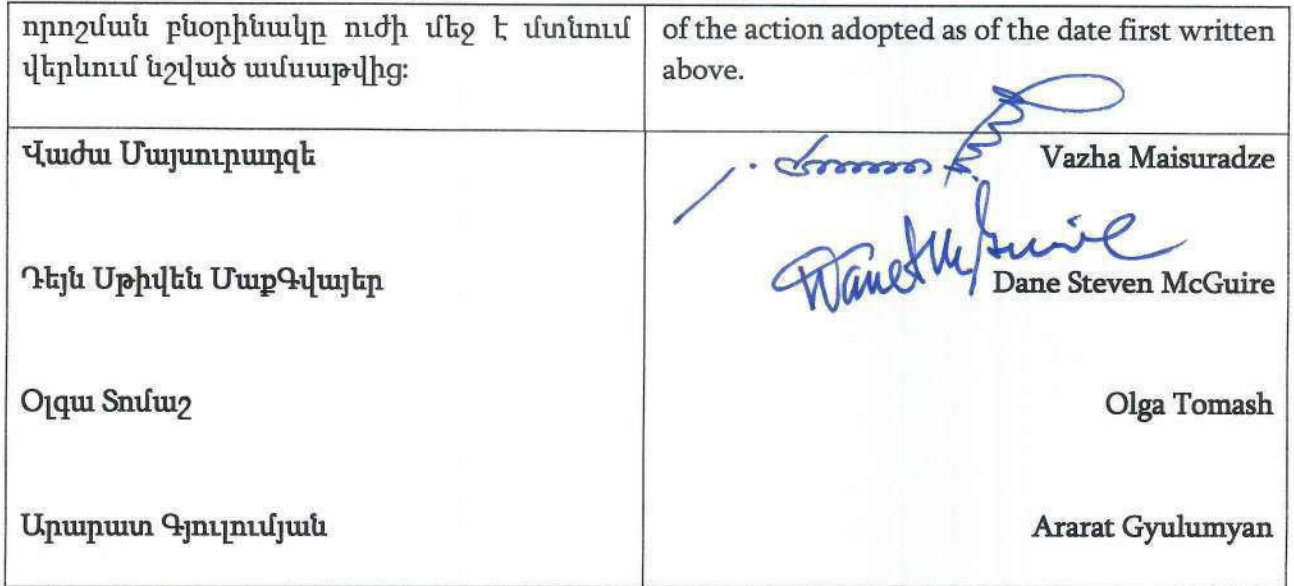 որոշման բնօրինակը ուժի մեջ է մտնում
վերևում նշված ամսաթվից:
of the action adopted as of the date first written
above.
Վաժա Մայսուրաղզե
Vazha Maisuradze
Դեյն Սթիվեն ՄաքԳվայեր
Dane Steven McGuire
Օլգա Տոմաշ
Olga Tomash
Արարատ Գյուլումյան
Ararat Gyulumyan